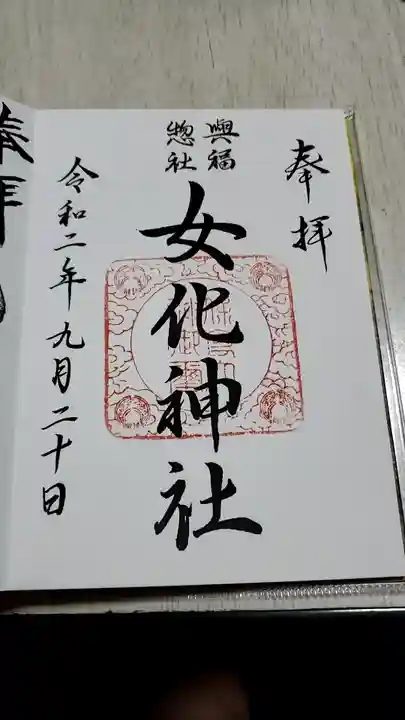 奉拝
興福
惣社
女化神社
令和二年九月二十日
奉拝